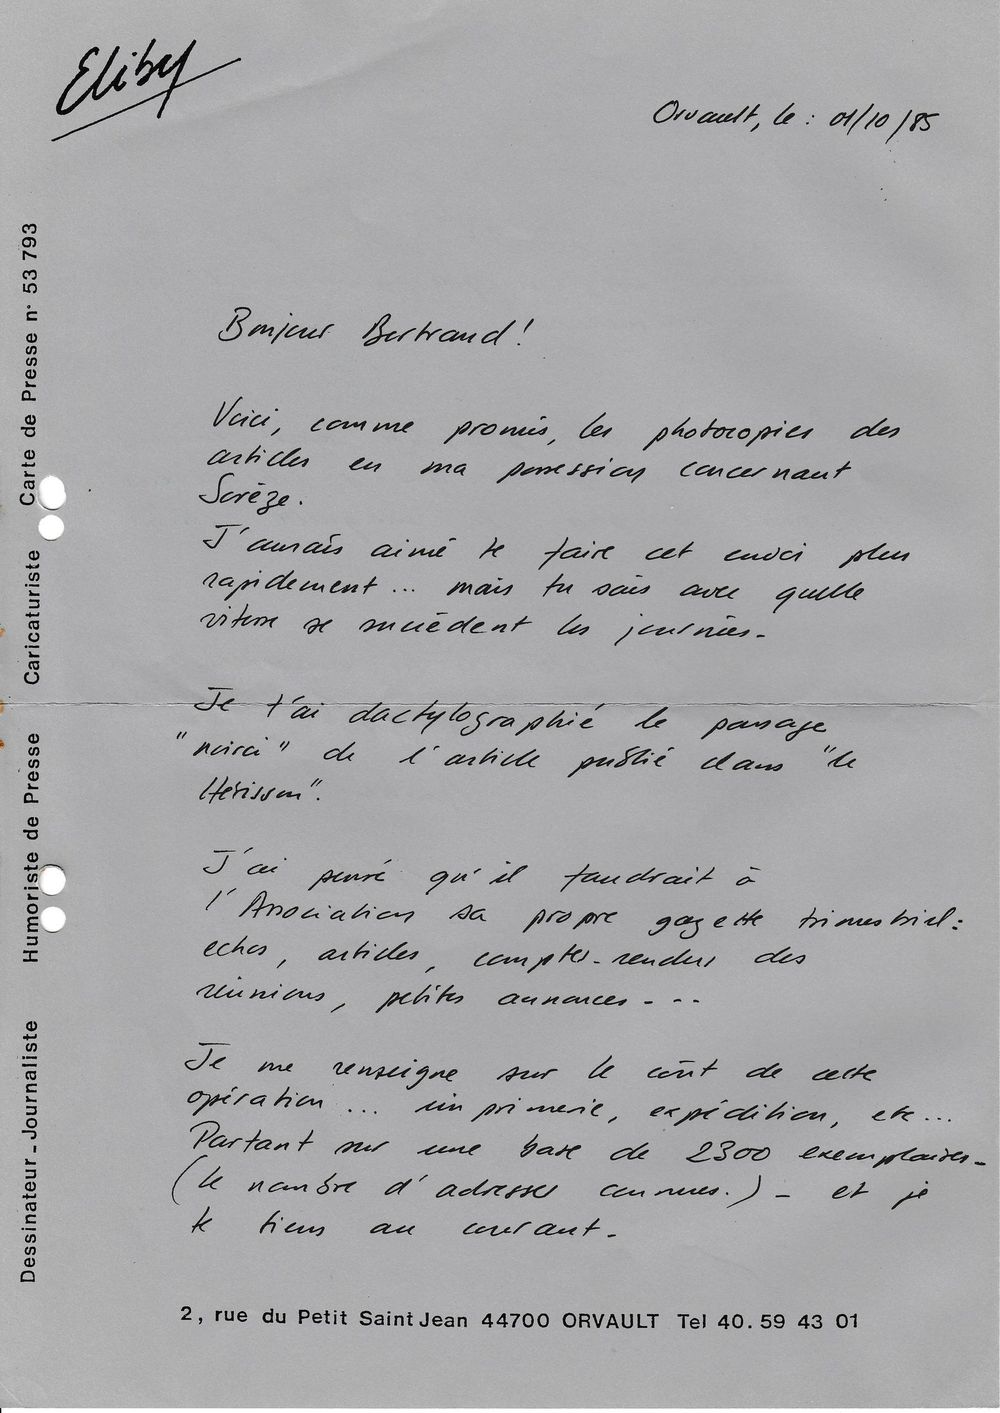 Eliby
Orvault, le : 01/10/85
Bonjour Bertrand !
Voici, comme promis, les photocopies des
articles en ma possession concernant
Sorèze.
J'aurais aimé te faire cet envoi plus
rapidement ... mais tu sais avec quelle
vitesse se succèdent les journées.
Je t'ai dactylographié le passage
"noirci" de l'article publié dans "le
Hérisson".
J'ai pensé qu'il faudrait à
l'Association sa propre gazette trimestriel :
echos, articles, comptes-rendus des
réunions, petites annonces - --
Je me renseigne sur le coût de cette
opération ... imprimerie, expédition, etc ...
Partant sur une base de 2300 exemplaires -
(le nombre d'adresses connues.) - et je
te tiens au courant.
2, rue du Petit Saint Jean 44700 ORVAULT Tel 40. 59 43 01
Dessinateur - Journaliste Humoriste de Presse Caricaturiste Carte de Presse n° 53 793